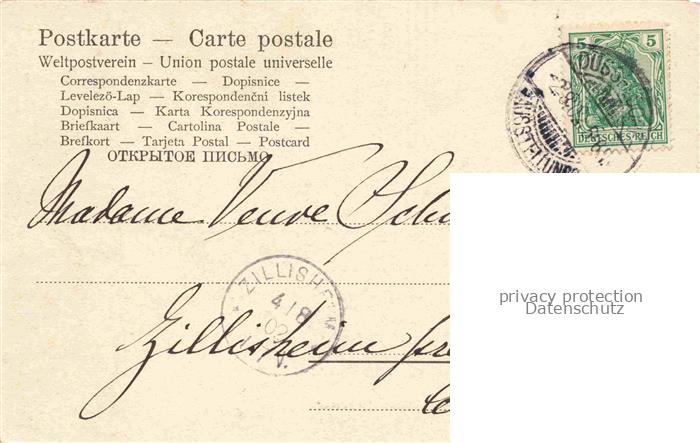 Postkarte — Carte postale
Weltpostverein — Union postale universelle
Correspondenzkarte — Dopisnice —
Levelező-Lap — Korespondenční listek
Dopisnica — Karta Korespondenzyjna
Briefkaart — Cartolina Postale —
Brefkort — Tarjeta Postal — Postcard
ОТКРЫТОЕ ПИСЬМО
5 5
DEUTSCHES REICH
AUSSTELLUNG
Madame Veuve
ZILLISHEIM
4/8
02
V.
Zillisheim
privacy protection
Datenschutz